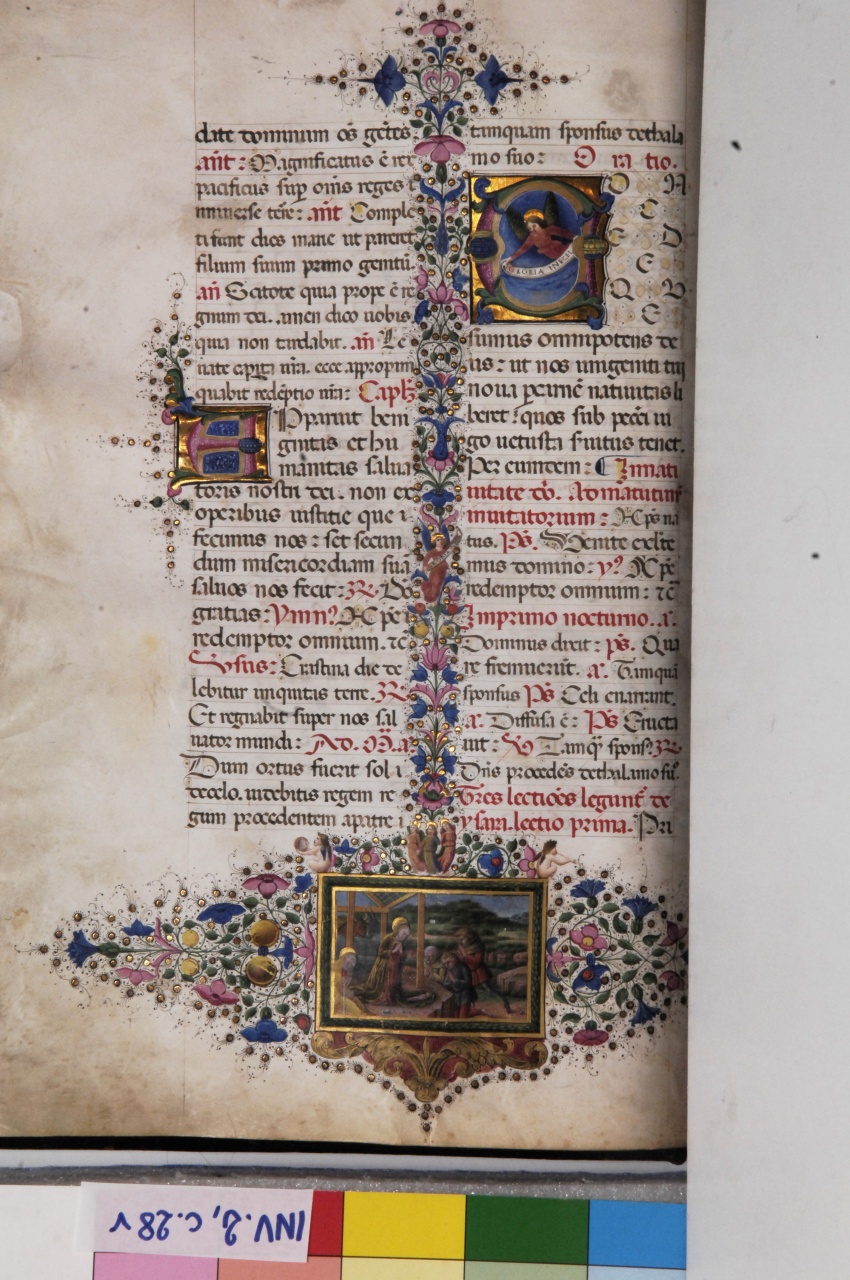 date dominum oẽs gẽtes.
añt: Magnificatus ẽ rex
pacificus sup omĩs reges
uniuerse terẽ: añt Comple
ti sunt dies marie ut pareret
filium suum primo genitũ.
añ Scitote quia prope ẽ re
gnum dei. amen dico uobis
quia non tardabit. añ Le
uate capita ur̃a. ecce appropin
quabit redẽptio ur̃a: Caplm̃
Apparuit beni
gnitas et hu
manitas salua
toris nostri dei. non ex
operibus iustitie que
fecimus nos: set secun
dum misericordiam suã
saluos nos fecit: ℟. Dẽo
gratias: Ymn9 Xpe
redemptor omnium. ⁊c
Vỹsus: Crastina die de
lebitur iniquitas terre. ℟.
Et regnabit super nos sal
uator mundi: Ad. M. a.
Dum ortus fuerit sol
decelo. uidebitis regem re
gum procedentem apatre
tamquam sponsus dethala
mo suo: Oratio.
CONCEDE
QUES
GLORIA IN EXC
sumus omnipotens de
us: ut nos unigeniti tui
noua p carnẽ natiuitas li
beret: quos sub pecc̃i iu
go uetusta seruitus tenet.
Per eumdem: Innati
uitate dõ. Admatutinũ
inuitatorium: Xp̃s na
tus. Ps. Venite exulte
mus domino: y9 Xpẽ
redemptor omnium: ⁊c̃
Inprimo nocturno. a.
Dominus dixit: ps. Qua
re fremuerũt. a. Tamquã
sponsus Ps Celi enarrant.
a. Diffusa ẽ: Ps Eructa
uit: ℣ Tamq̃ spons9 ℟
Dñs procedẽs dethalamo suo.
Tres lectiões legunt de
ysaia. lectio prima. Pri
INV. 2, c. 28 v